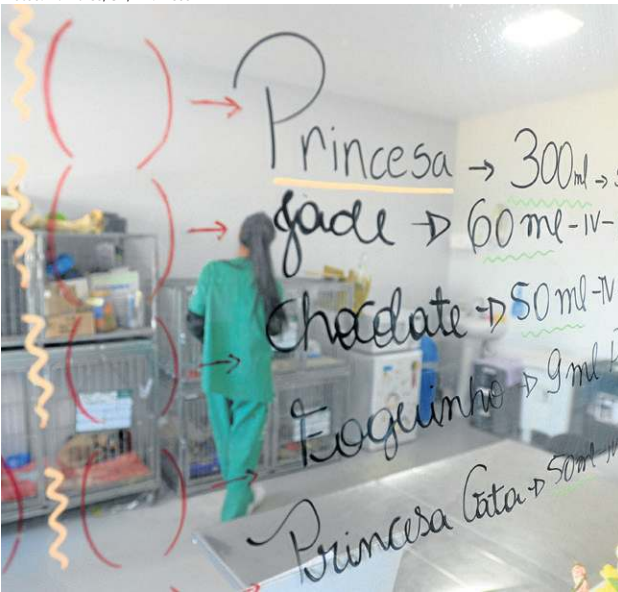 Princesa → 300ml →
Jade → 60 ml - IV -
Chocolate → 50 ml - IV
Foguinho → 9 ml
Princesa Gata → 50ml - IV